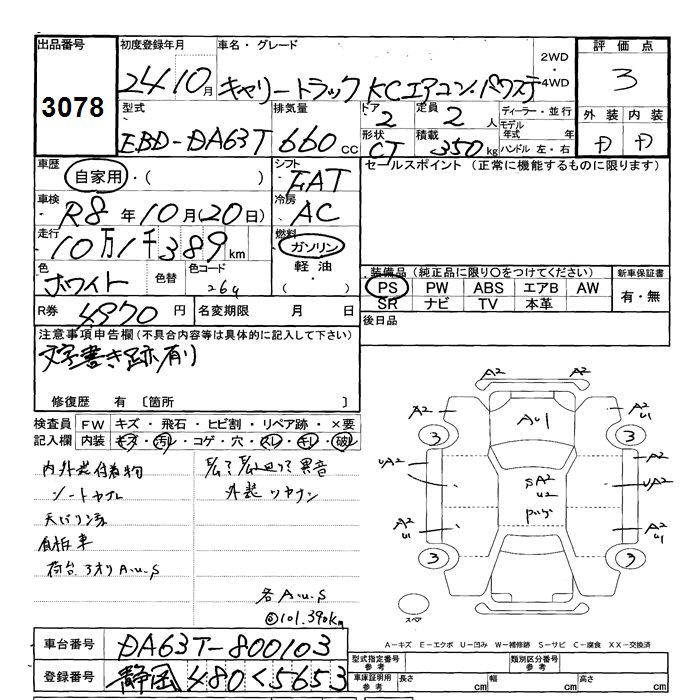 出品番号 初度登録年月 車名・グレード 2WD・4WD 評価点
3078 24 10月 キャリートラック KCエアコン・パワステ 3
型式 排気量 ドア 定員 ディーラー・並行 外装 内装
EBD-DA63T 660cc 2 2人 モデル年式 年 D D
形状 積載 ハンドル 左・右
CT 350kg
車歴 シフト セールスポイント (正常に機能するものに限ります)
自家用・( ) FAT
車検 冷房
R8年10月(20日) AC
走行 燃料
10万1千389km ガソリン
色 色替 色コード 軽油
ホワイト 26U ・( )
装備品 (純正品に限り○をつけてください) 新車保証書
PS PW ABS エアB AW 有・無
SR ナビ TV 本革
R券 4970円 名変期限 月 日 後日品
注意事項申告欄 (不具合内容等は具体的に記入して下さい)
文字書き跡有り
修復歴 有 〔箇所 〕
検査員 FW キズ・飛石・ヒビ割・リペア跡・×要
記入欄 内装 キズ・汚レ・コゲ・穴・スレ・キレ・破レ
内外装付着物 異音
シートヤブレ 外装
自板車
荷台 3方リ A.U.S
各A.U.S
◎101.390km
A2 A2
A2 AU1 A2 U1
3 3
UA2 A2
SA2 U2 UA2
A2 U1 A2 U1
3 3
スペア
A-キズ E-エクボ U-凹み W-補修跡 S-サビ C-腐食 XX-交換済
車台番号 DA63T-800103 型式指定番号 参考 類別区分番号 参考
登録番号 静岡480く5653 車庫証明用 参考 長さ cm 幅 cm 高さ cm